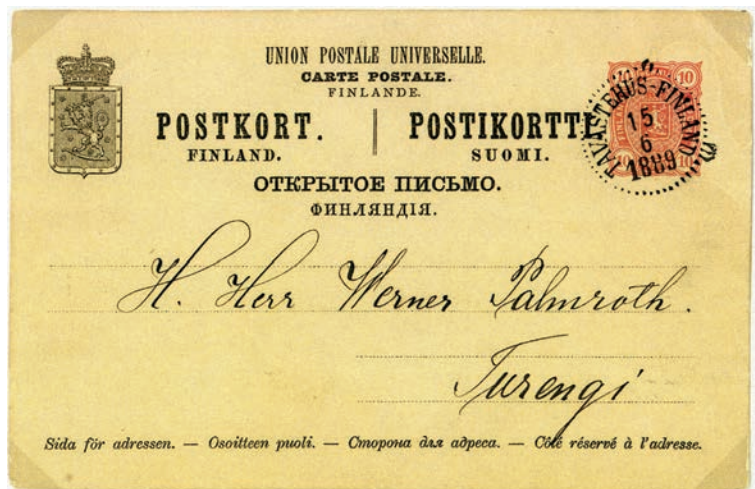 UNION POSTALE UNIVERSELLE.
CARTE POSTALE.
FINLANDE.
POSTKORT. | POSTIKORTTI
FINLAND. SUOMI.
ОТКРЫТОЕ ПИСЬМО.
ФИНЛЯНДІЯ.
10 10
TAVASTEHUS-FINLAND
15
6
1889
10 10
H. Herr Werner Palmroth.
Turengi
Sida för adressen. — Osoitteen puoli. — Сторона для адреса. — Côté réservé à l'adresse.